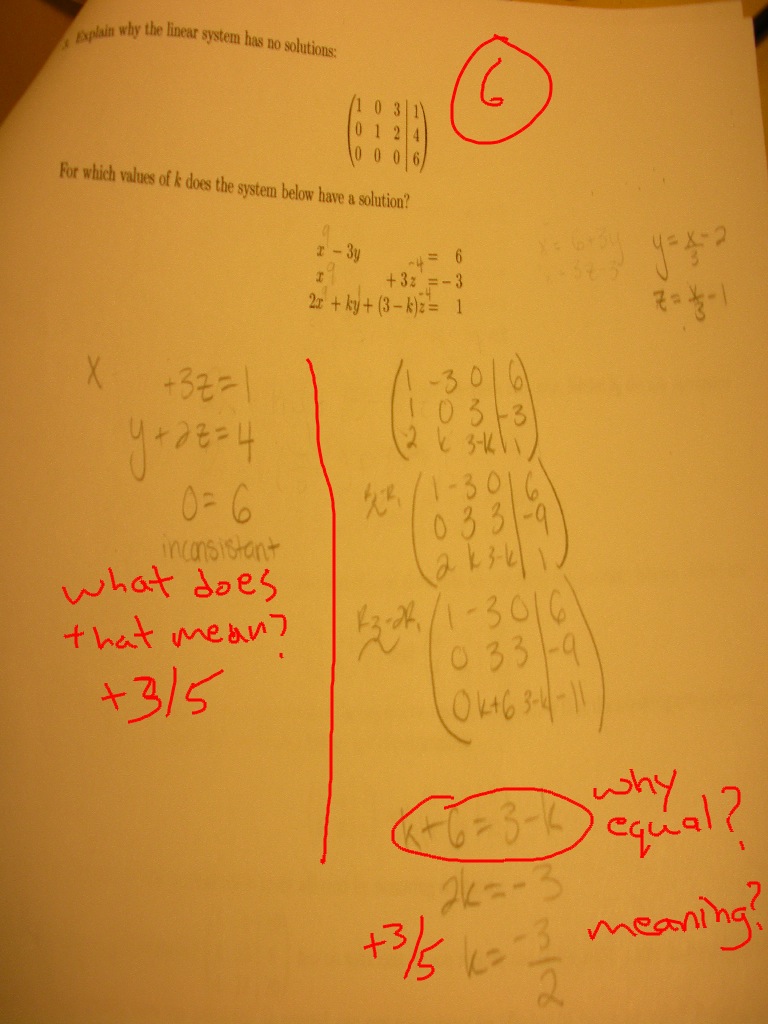 Explain why the linear system has no solutions:
6
1 0 3 | 1
0 1 2 | 4
0 0 0 | 6
For which values of k does the system below have a solution?
9
x - 3y = 6
9 -4
x + 3z = -3
9 -4
2x + ky + (3 - k)z = 1
x = 6+3y
y = x/3 - 2
z = x/3 - 1
x +3z = 1
y + 2z = 4
0 = 6
inconsistant
what does
that mean?
+3/5
1 -3 0 | 6
1 0 3 | -3
2 k 3-k | 1
R2-R1
1 -3 0 | 6
0 3 3 | -9
2 k 3-k | 1
R3-2R1
1 -3 0 | 6
0 3 3 | -9
0 k+6 3-k | -11
k+6 = 3-k
why
equal?
2k = -3
k = -3/2
meaning?
+3/5